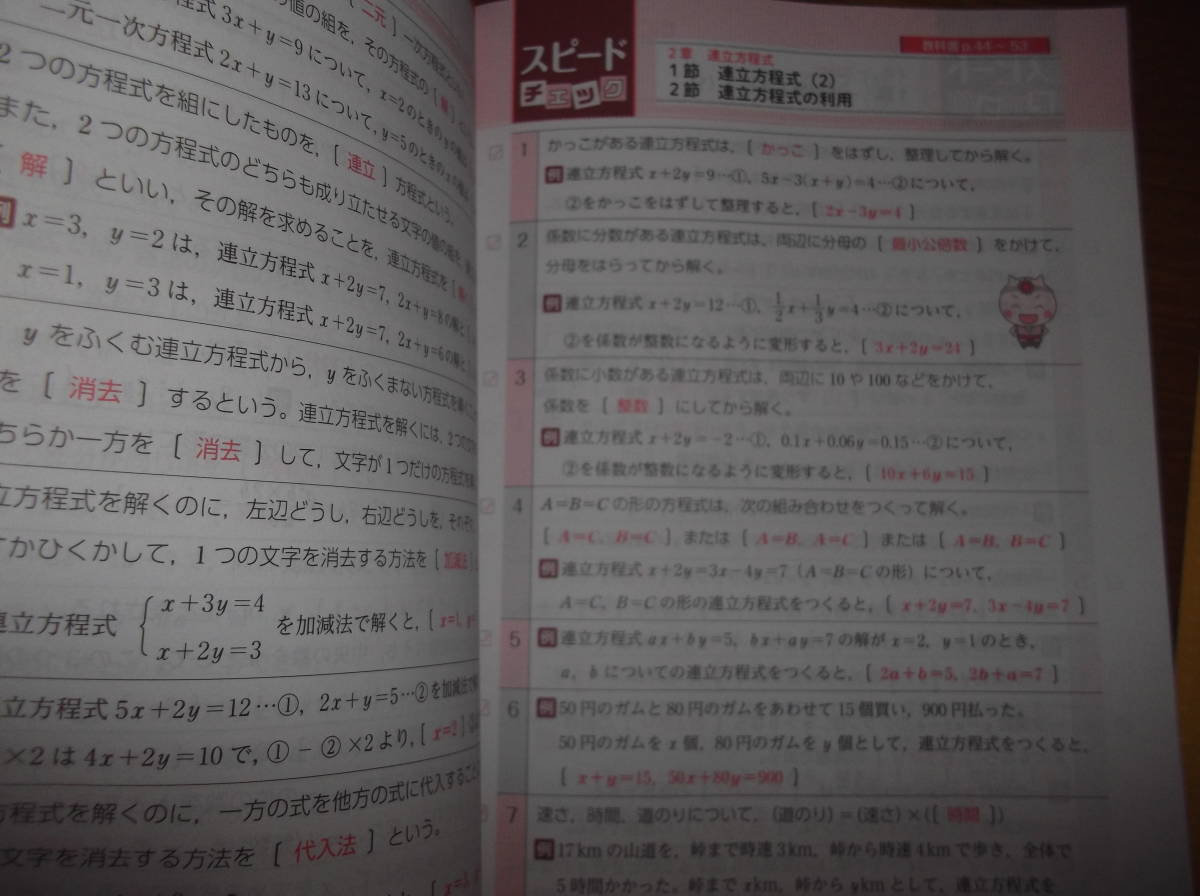 [ 二元 ] 一次方程式と
程式 3x+y=9について, x=2のときのyの値は
の値の組を, その方程式の [
二元一次方程式 2x+y=13について, y=5のときのxの値は
2つの方程式を組にしたものを, [ 連立 ] 方程式という。
また, 2つの方程式のどちらも成り立たせる文字の値の組を,
[ 解 ] といい, その解を求めることを, 連立方程式を [
例 x=3, y=2は, 連立方程式 x+2y=7, 2x+y=8の解
x=1, y=3は, 連立方程式 x+2y=7, 2x+y=6の解
yをふくむ連立方程式から, yをふくまない方程式を導くこ
を [ 消去 ] するという。連立方程式を解くには, 2つの文
ちらか一方を [ 消去 ] して, 文字が1つだけの方程式を
立方程式を解くのに, 左辺どうし, 右辺どうしを, それぞれ
てかひくかして, 1つの文字を消去する方法を [ 加減法 ]
連立方程式 { x+3y=4
x+2y=3 を加減法で解くと, [ x=1,
立方程式 5x+2y=12…①, 2x+y=5…②を加減法で解
×2は 4x+2y=10で, ①-②×2より, [ x=2 ]
方程式を解くのに, 一方の式を他方の式に代入すること
文字を消去する方法を [ 代入法 ] という。
スピード
チェック
教科書 p.44〜53
2章 連立方程式
1節 連立方程式 (2)
2節 連立方程式の利用
1 かっこがある連立方程式は, [ かっこ ] をはずし, 整理してから解く。
例 連立方程式 x+2y=9…①, 5x-3(x+y)=4…②について,
②をかっこをはずして整理すると, [ 2x-3y=4 ]
2 係数に分数がある連立方程式は, 両辺に分母の [ 最小公倍数 ] をかけて,
分母をはらってから解く。
例 連立方程式 x+2y=12…①, 1/2x+1/3y=4…②について,
②を係数が整数になるように変形すると, [ 3x+2y=24 ]
3 係数に小数がある連立方程式は, 両辺に10や100などをかけて,
係数を [ 整数 ] にしてから解く。
例 連立方程式 x+2y=-2…①, 0.1x+0.06y=0.15…②について,
②を係数が整数になるように変形すると, [ 10x+6y=15 ]
4 A=B=Cの形の方程式は, 次の組み合わせをつくって解く。
[ A=C, B=C ] または [ A=B, A=C ] または [ A=B, B=C ]
例 連立方程式 x+2y=3x-4y=7 (A=B=Cの形) について,
A=C, B=Cの形の連立方程式をつくると, [ x+2y=7, 3x-4y=7 ]
5 例 連立方程式 ax+by=5, bx+ay=7の解が x=2, y=1のとき,
a, bについての連立方程式をつくると, [ 2a+b=5, 2b+a=7 ]
6 例 50円のガムと80円のガムをあわせて15個買い, 900円払った。
50円のガムをx個, 80円のガムをy個として, 連立方程式をつくると,
[ x+y=15, 50x+80y=900 ]
7 速さ, 時間, 道のりについて, (道のり)=(速さ)×([ 時間 ])
例 17kmの山道を, 峠まで時速3km, 峠から時速4kmで歩き, 全体で
5時間かかった。峠までxkm, 峠からykmとして, 連立方程式を